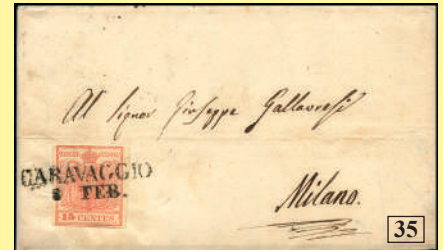 Al Signor Giuseppe Gallavresi
CARAVAGGIO
8 FEB.
15 CENTES
Milano.
35